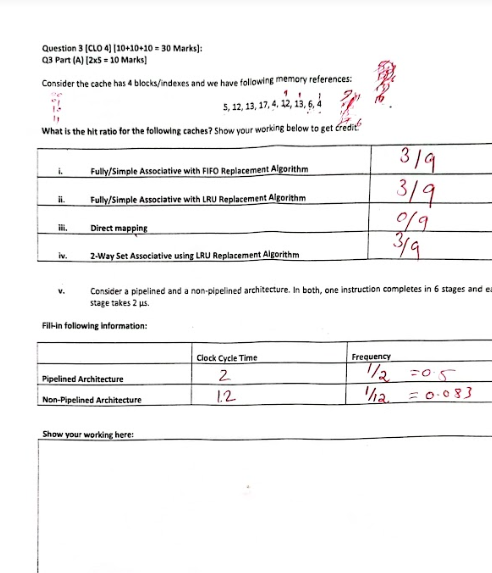 Question 3 [CLO 4] [10+10+10 = 30 Marks]:
Q3 Part (A) [2x5 = 10 Marks]
Consider the cache has 4 blocks/indexes and we have following memory references:
5, 12, 13, 17, 4, 12, 13, 6, 4
What is the hit ratio for the following caches? Show your working below to get credit!
i. Fully/Simple Associative with FIFO Replacement Algorithm 3/9
ii. Fully/Simple Associative with LRU Replacement Algorithm 3/9
iii. Direct mapping 0/9
iv. 2-Way Set Associative using LRU Replacement Algorithm 3/9
v. Consider a pipelined and a non-pipelined architecture. In both, one instruction completes in 6 stages and
stage takes 2 µs.
Fill-in following information:
Clock Cycle Time Frequency
Pipelined Architecture 2 1/2 =0.5
Non-Pipelined Architecture 12 1/12 = 0.083
Show your working here: